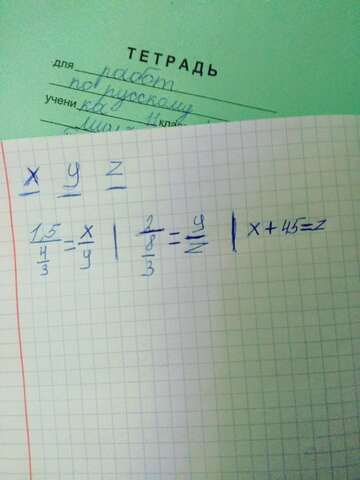 ТЕТРАДЬ
для работ
по русскому
учени ка 11 клас
x y z
1,5/(4/3) = x/y | 2/(8/3) = y/z | x + 45 = z